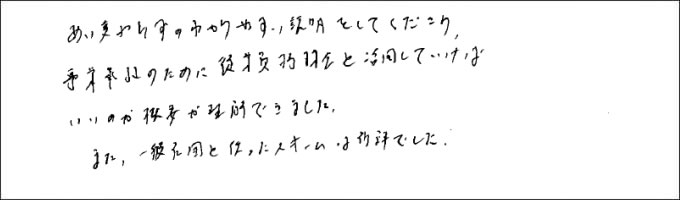 あい変わらずのわかりやすい説明をしてくださり、
事業承継のために従業員持株会を活用していけば
いいのか概要が理解できました。
また、一般社団を使ったスキームは好評でした。